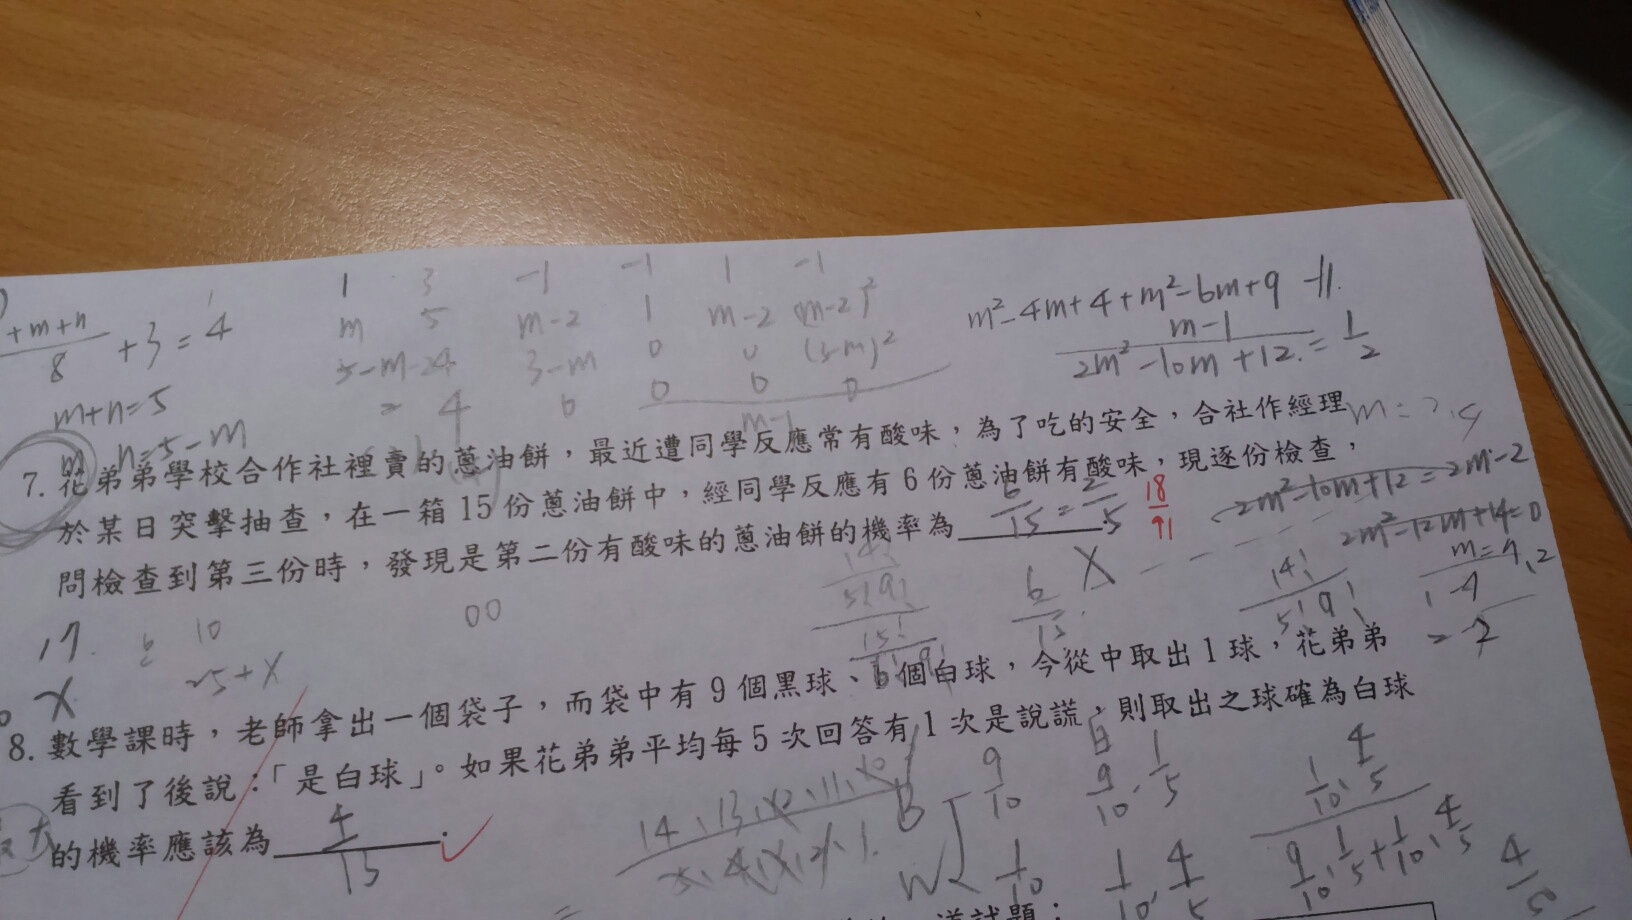 1 3 -1 -1 1 -1
+m+n/8 + 3 = 4
m 5 m-2 1 m-2 (m-2)²
3-m 0 0 (3-m)²
= 4 0 0 0
m²-4m+4+m²-6m+9-11
m-1
2m²-10m+12 = 1/2
m+n=5
n=5-m
m-1
7. 花弟弟學校合作社裡賣的蔥油餅,最近遭同學反應常有酸味,為了吃的安全,合社作經理
於某日突擊抽查,在一箱15份蔥油餅中,經同學反應有6份蔥油餅有酸味,現逐份檢查,
問檢查到第三份時,發現是第二份有酸味的蔥油餅的機率為 6/15 = 2/5 18/91
2m²-10m+12=2m-2
2m²-12m+14=0
14!/5!9!
15!/6!9!
6/15
X
14!/5!9!
m=4,2
17.
10
25+X
X
8. 數學課時,老師拿出一個袋子,而袋中有9個黑球、1個白球,今從中取出1球,花弟弟
看到了後說:「是白球」。如果花弟弟平均每5次回答有1次是說謊,則取出之球確為白球
的機率應該為 4/13 ;
14.13.12.11.10
5.4.3.2.1
B 9/10 9/10.1/5
白
W 1/10 1/10.4/5
1/10.4/5
9/10.1/5+1/10.4/5
4
道試題: